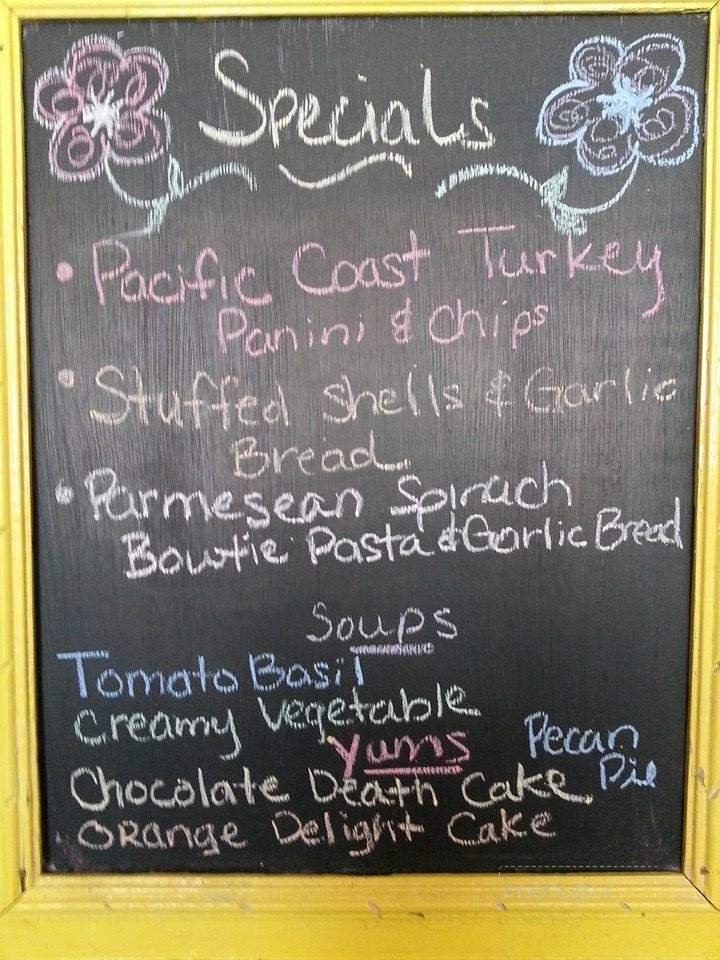 Specials
• Pacific Coast Turkey
Panini & Chips
• Stuffed Shells & Garlic
Bread
• Parmesean Spinach
Bowtie Pasta & Garlic Bread
Soups
Tomato Basil
Creamy Vegetable
Yums
Pecan
Pie
Chocolate Death Cake
Orange Delight Cake